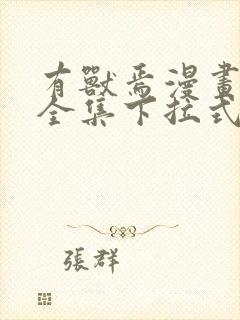 有獸焉漫畫
全集下拉式
張群